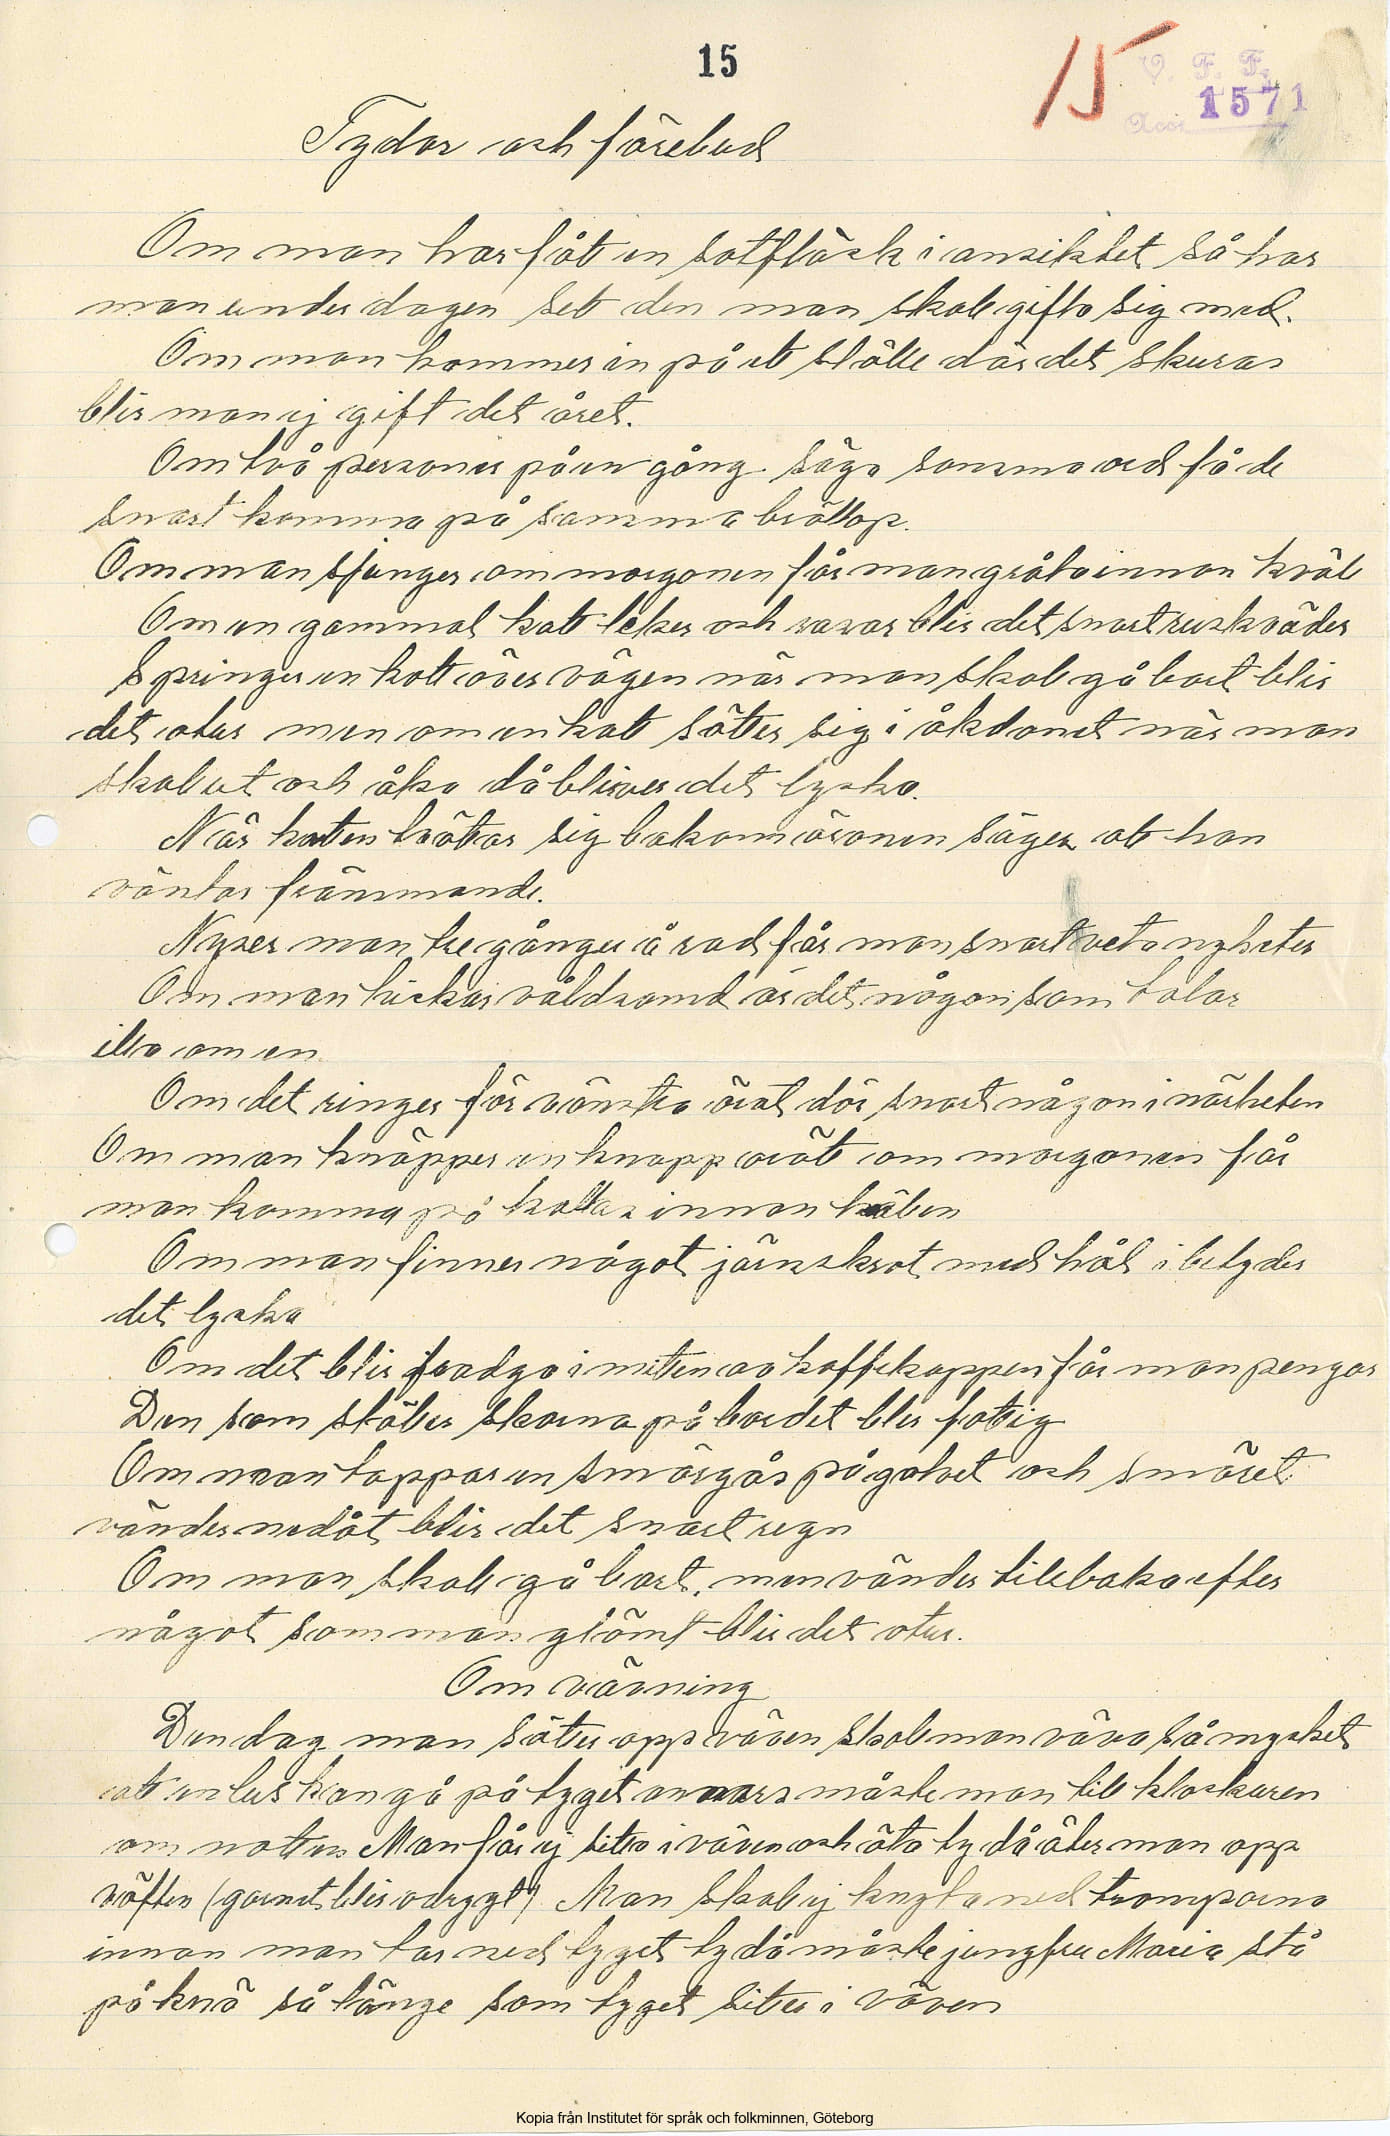 15
15
V. F. F.
Acc. 1571
Tydor och förebud
Om man har fåt en sotfläck i ansiktet så har
man under dagen set den man skall gifta sig med.
Om man kommer in på ett ställe där det skuras
blir man ej gift det året.
Om två personer på en gång säga samma ord få de
snart komma på samma bröllop.
Om man sjunger om morgonen får man gråta innan kväll
Om en gammal katt leker och rasar blir det snart ruskväder
Springer en katt över vägen när man skall gå bort blir
det otur men om en katt sätter sig i åkdonet när man
skall ut och åka då bliver det lycka.
När katten tvättar sig bakom öronen säges att han
väntar främmande.
Nyser man tre gånger å rad får man snart veta nyheter
Om man hickar våldsamd är det någon som talar
illa om en
Om det ringer för vänstra örat dör snart någon i närheten
Om man knäpper en knapp orätt om morgonen får
man komma på kallas innan kvällen
Om man finner något järnskrot med hål i betyder
det lycka
Om det blir fradga i mitten av kaffekoppen får man pengar
Den som ställer skorna på bordet blir fattig
Om man tappar en smörgås på golvet och smöret
vänder nedåt blir det snart regn
Om man skall gå bort, men vänder tillbaka efter
något som man glömt blir det otur.
Om vävning
Den dag man sätter opp väven skall man väva så mycket
att en lus kan gå på tyget annars måste man till klockaren
om natten Man får ej sitta i väven och äta ty då äter man opp
väften (garnet blir odrygt) Man skall ej knyta ned tramporna
innan man tar ned tyget ty då måste jungfru Maria stå
på knä så länge som tyget sitter i väven
Kopia från Institutet för språk och folkminnen, Göteborg